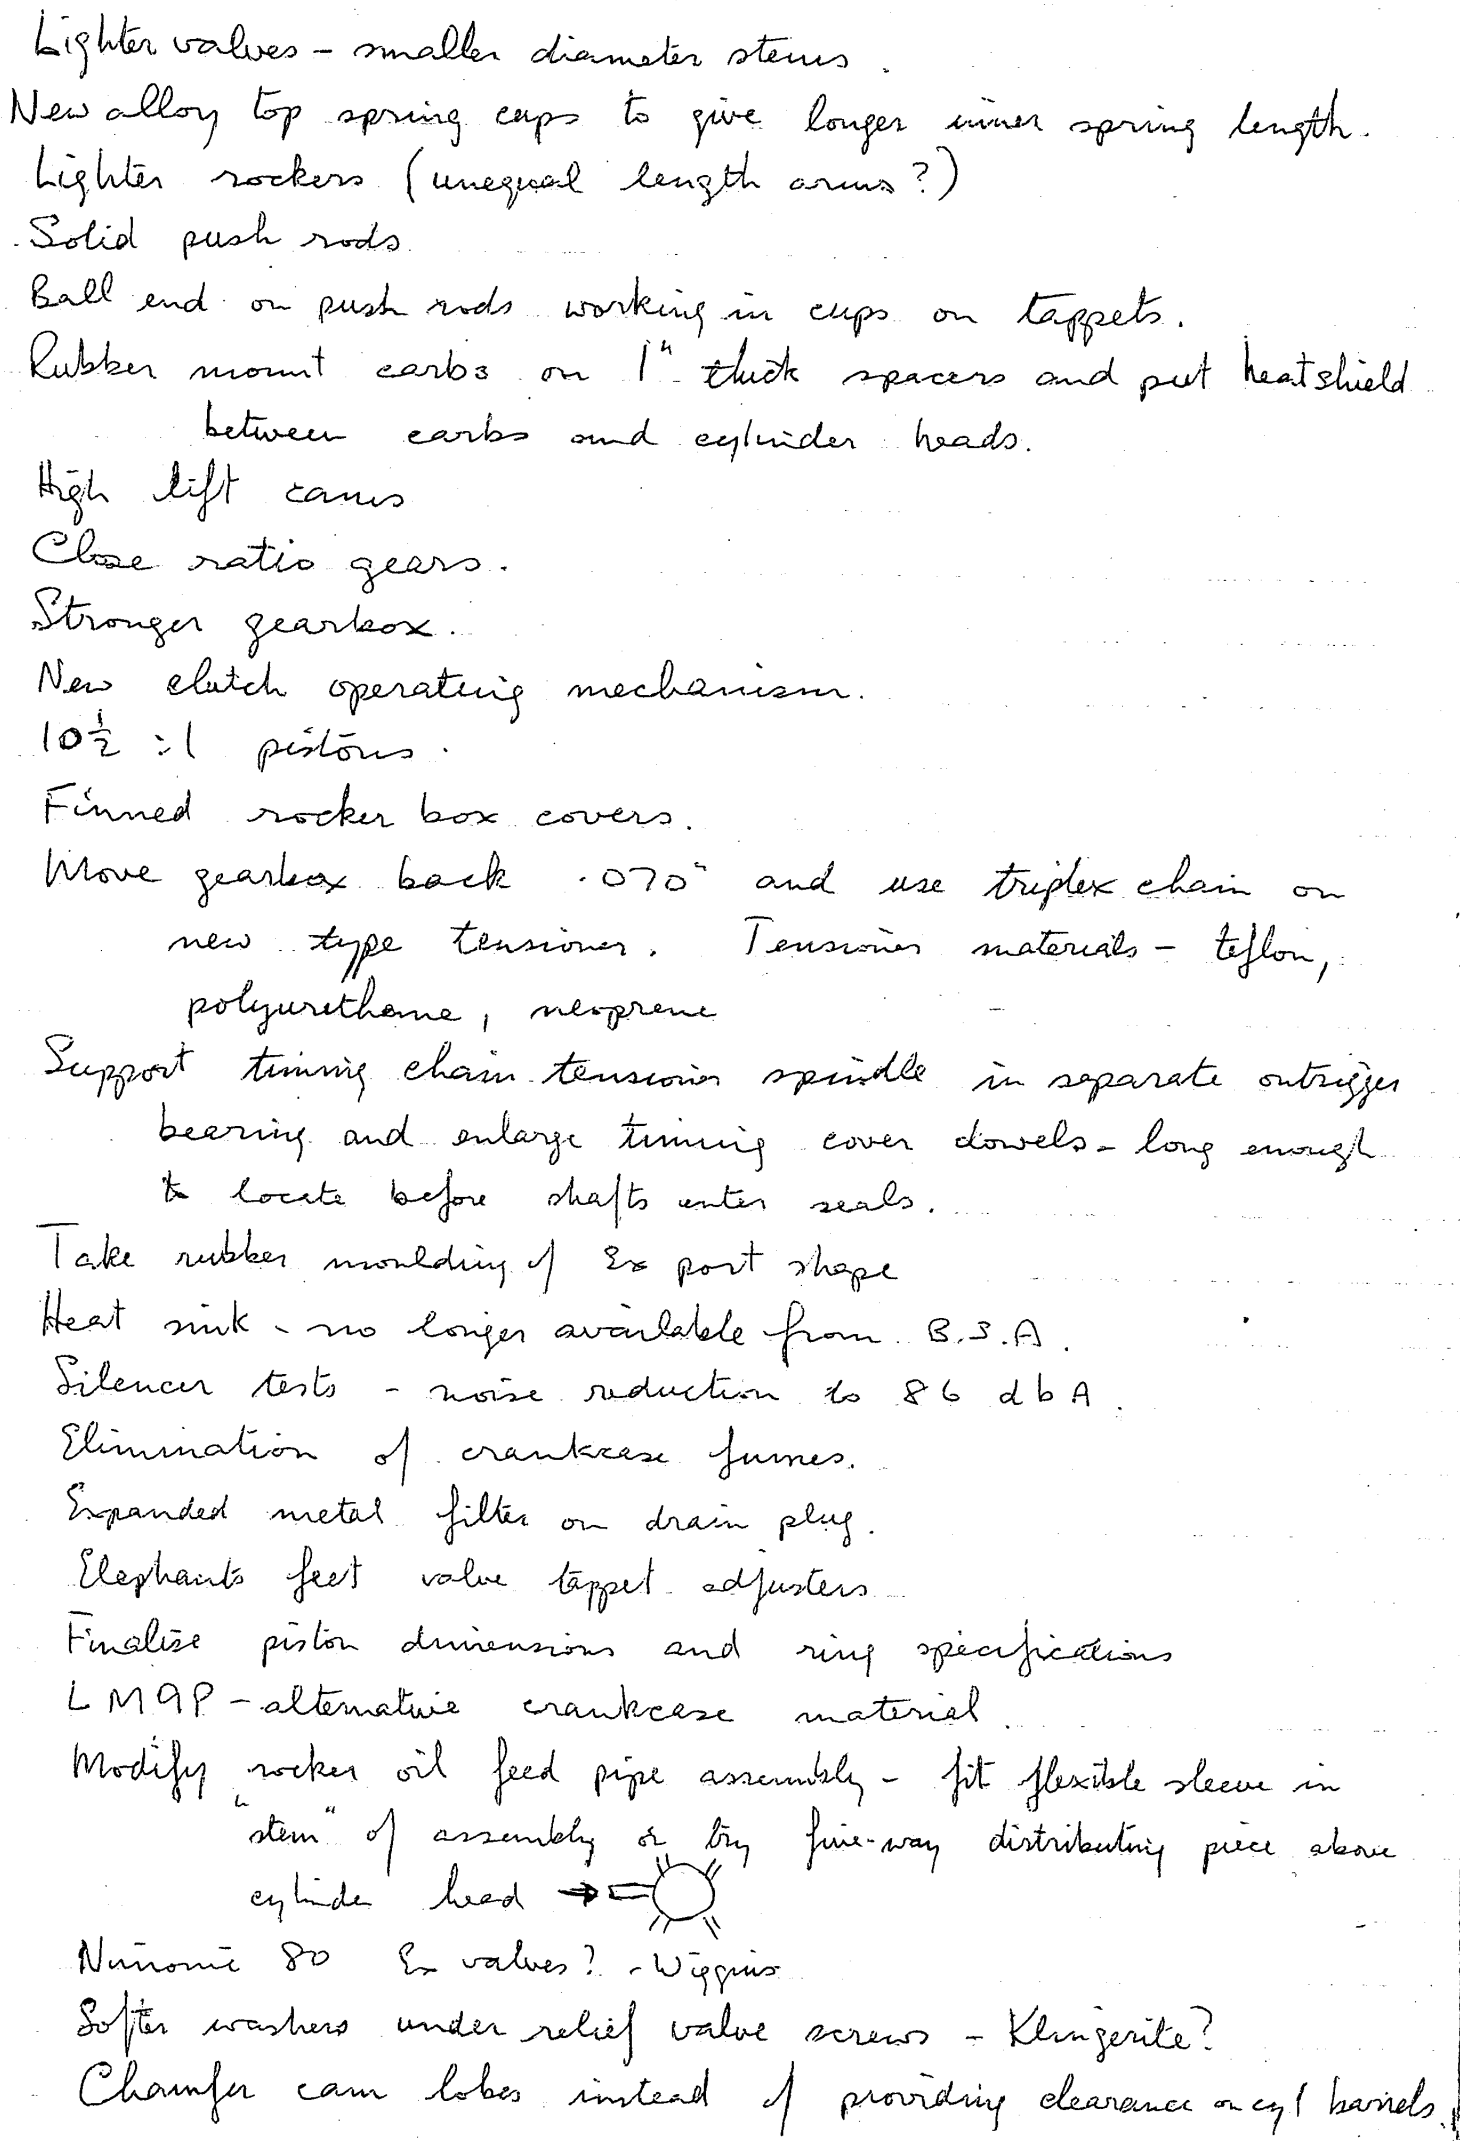 Lighter valves - smaller diameter stems.
New alloy top spring caps to give longer inner spring length.
Lighter rockers (unequal length arms?)
Solid push rods.
Ball end on push rods working in cups on tappets.
Rubber mount carbs on 1" thick spacers and put heatshield
between carbs and cylinder heads.
High lift cams
Close ratio gears.
Stronger gearbox.
New clutch operating mechanism.
10½ :1 pistons.
Finned rocker box covers.
Move gearbox back .070" and use triplex chain on
new type tensioner. Tensioner materials - teflon,
polyurethane, neoprene
Support timing chain tensioner spindle in separate outrigger
bearing and enlarge timing cover dowels - long enough
to locate before shafts enter seals.
Take rubber moulding of Ex port shape
Heat sink - no longer available from B.S.A.
Silencer tests - noise reduction to 86 dbA.
Elimination of crankcase fumes.
Expanded metal filter on drain plug.
Elephants feet valve tappet adjusters
Finalise piston dimensions and ring specifications
LM9P - alternative crankcase material.
Modify rocker oil feed pipe assembly - fit flexible sleeve in
"stem" of assembly or try five-way distributing piece above
cylinder head
Nimonic 80 Ex valves? - Wiggins
Softer washers under relief valve screws - Klingerite?
Chamfer cam lobes instead of providing clearance on cyl barrels.